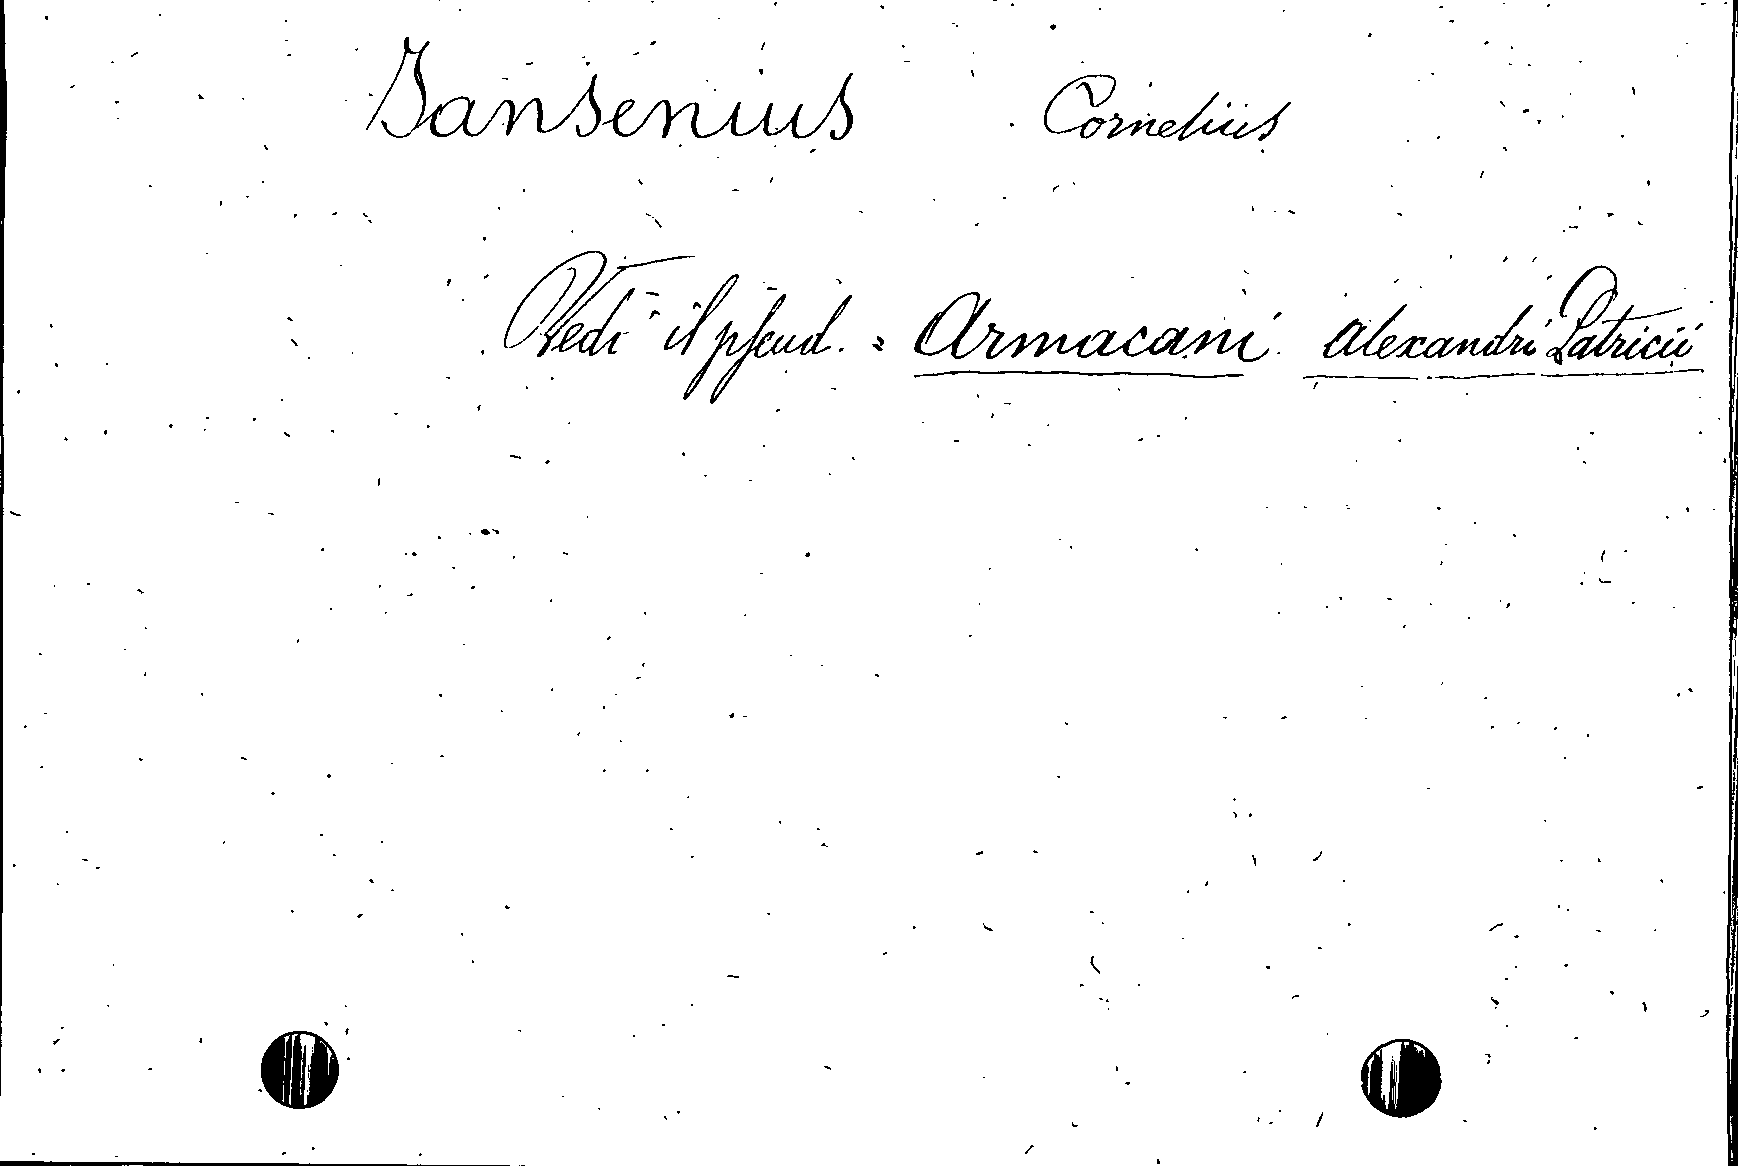 Jansenius Cornelius
Vedi il pseud. = Armacani Alexandri Patricii